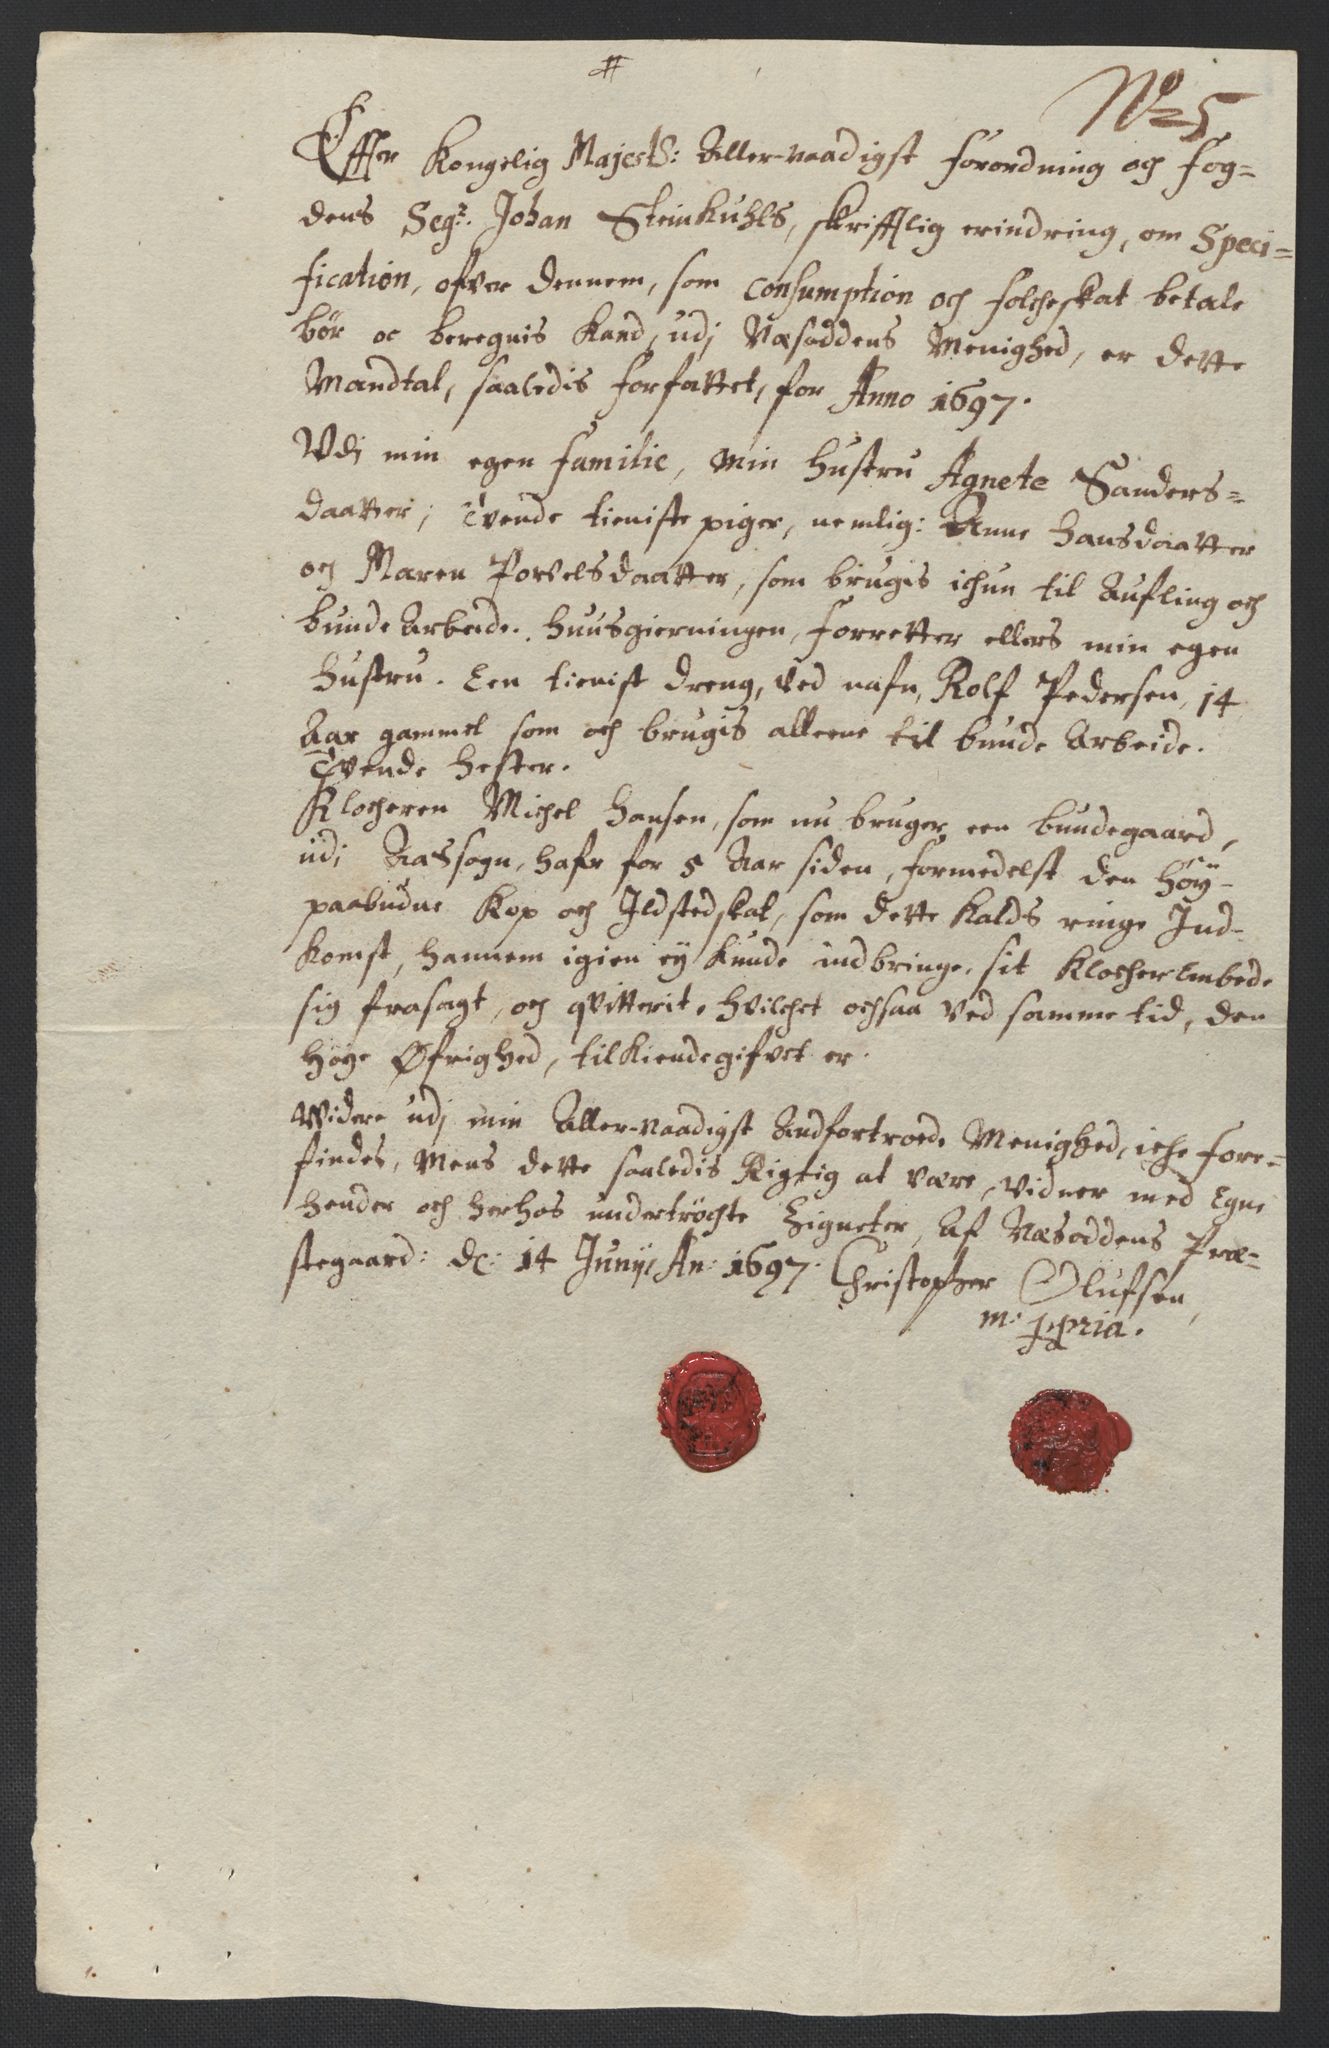 No 5
Effter Kongelig Majestß: Aller-naadigst forordning och fog=
dens Segr. Johan Steinkuhls, skrifftlig erindring, om Speci=
fication, ofver dennem, som Consumption och folcheskat betale
bør oc beregnis kand, udj Næsoddens Menighed, er dette
Mandtal, saaledis forfattet, for Anno 1697.
Udj min egen familie, Min Hustru Agnete Sanders=
daatter; Tvende tieniste piger, nemlig: Anne Hansdaatter
och Maren Povelsdaatter, som brugis ichun til Aufling och
bunde Arbeide. Huusgierningen, forretter ellers min egen
Hustru. Een tienist dreng, ved nafn, Rolf Pedersen, 14
Aar gammel som och brugis alleene til bunde Arbeide.
Tvende Hester.
Klocheren Michel Hansen, som nu bruger een bundegaard,
udi Aassogn, hafr for 5 Aar siden, formedelst den Høy-
paabudne Kop och Ildstedskat, som dette Kalds ringe Ind-
komst, hannem igien ey kunde indbringe, sit Klocher Embede
sig frasagt, och qvitterit. Hvilchet ochsaa ved samme tid, den
Høye Øfrighed, tilkiendegifvet er.
Widere udj min Aller-Naadigst Andfortroede Menighed, iche fore=
findes, Mens dette saaledis Rigtig at være, vidner med Egne
hender och herhos undertröchte Zigneter, Af Næsoddens Præ-
stegaard: dc: 14 Junij An: 1697. Christopher Olufsen
m: ppria.